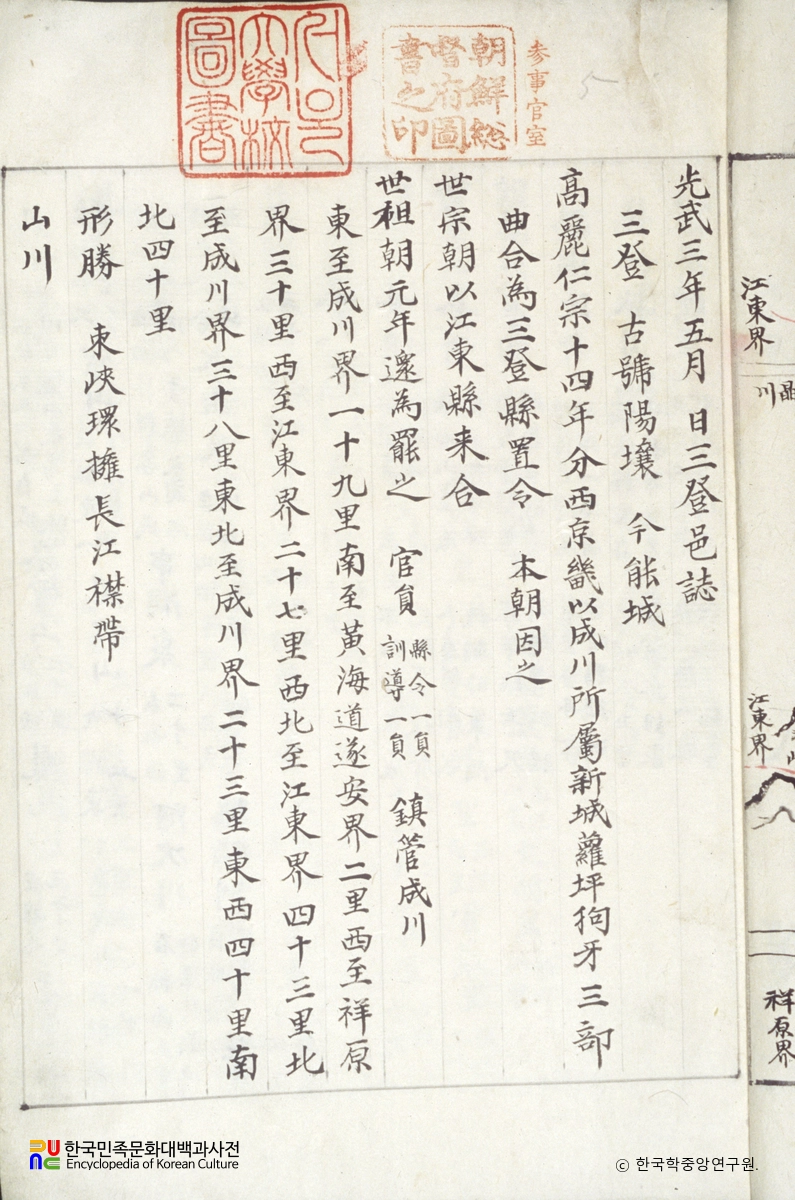 光武三年五月 日三登邑誌
三登 古號陽壤 今能城
高麗仁宗十四年分西京畿以成川所屬新城蘿坪狗牙三部
曲合為三登縣置令 本朝因之
世宗朝以江東縣来合
世祖朝元年還為罷之 官員 縣令一員 訓導一員 鎮管成川
東至成川界一十九里南至黃海道遂安界二里西至祥原
界三十里西至江東界二十七里西北至江東界四十三里北
至成川界三十八里東北至成川界二十三里東西四十里南
北四十里
形勝 東峽環擁長江襟帶
山川
参事官室
朝鮮総
督府圖
書之印
大學校
圖書
江東界
川
江東界
祥原界
한국민족문화대백과사전
Encyclopedia of Korean Culture
ⓒ 한국학중앙연구원.